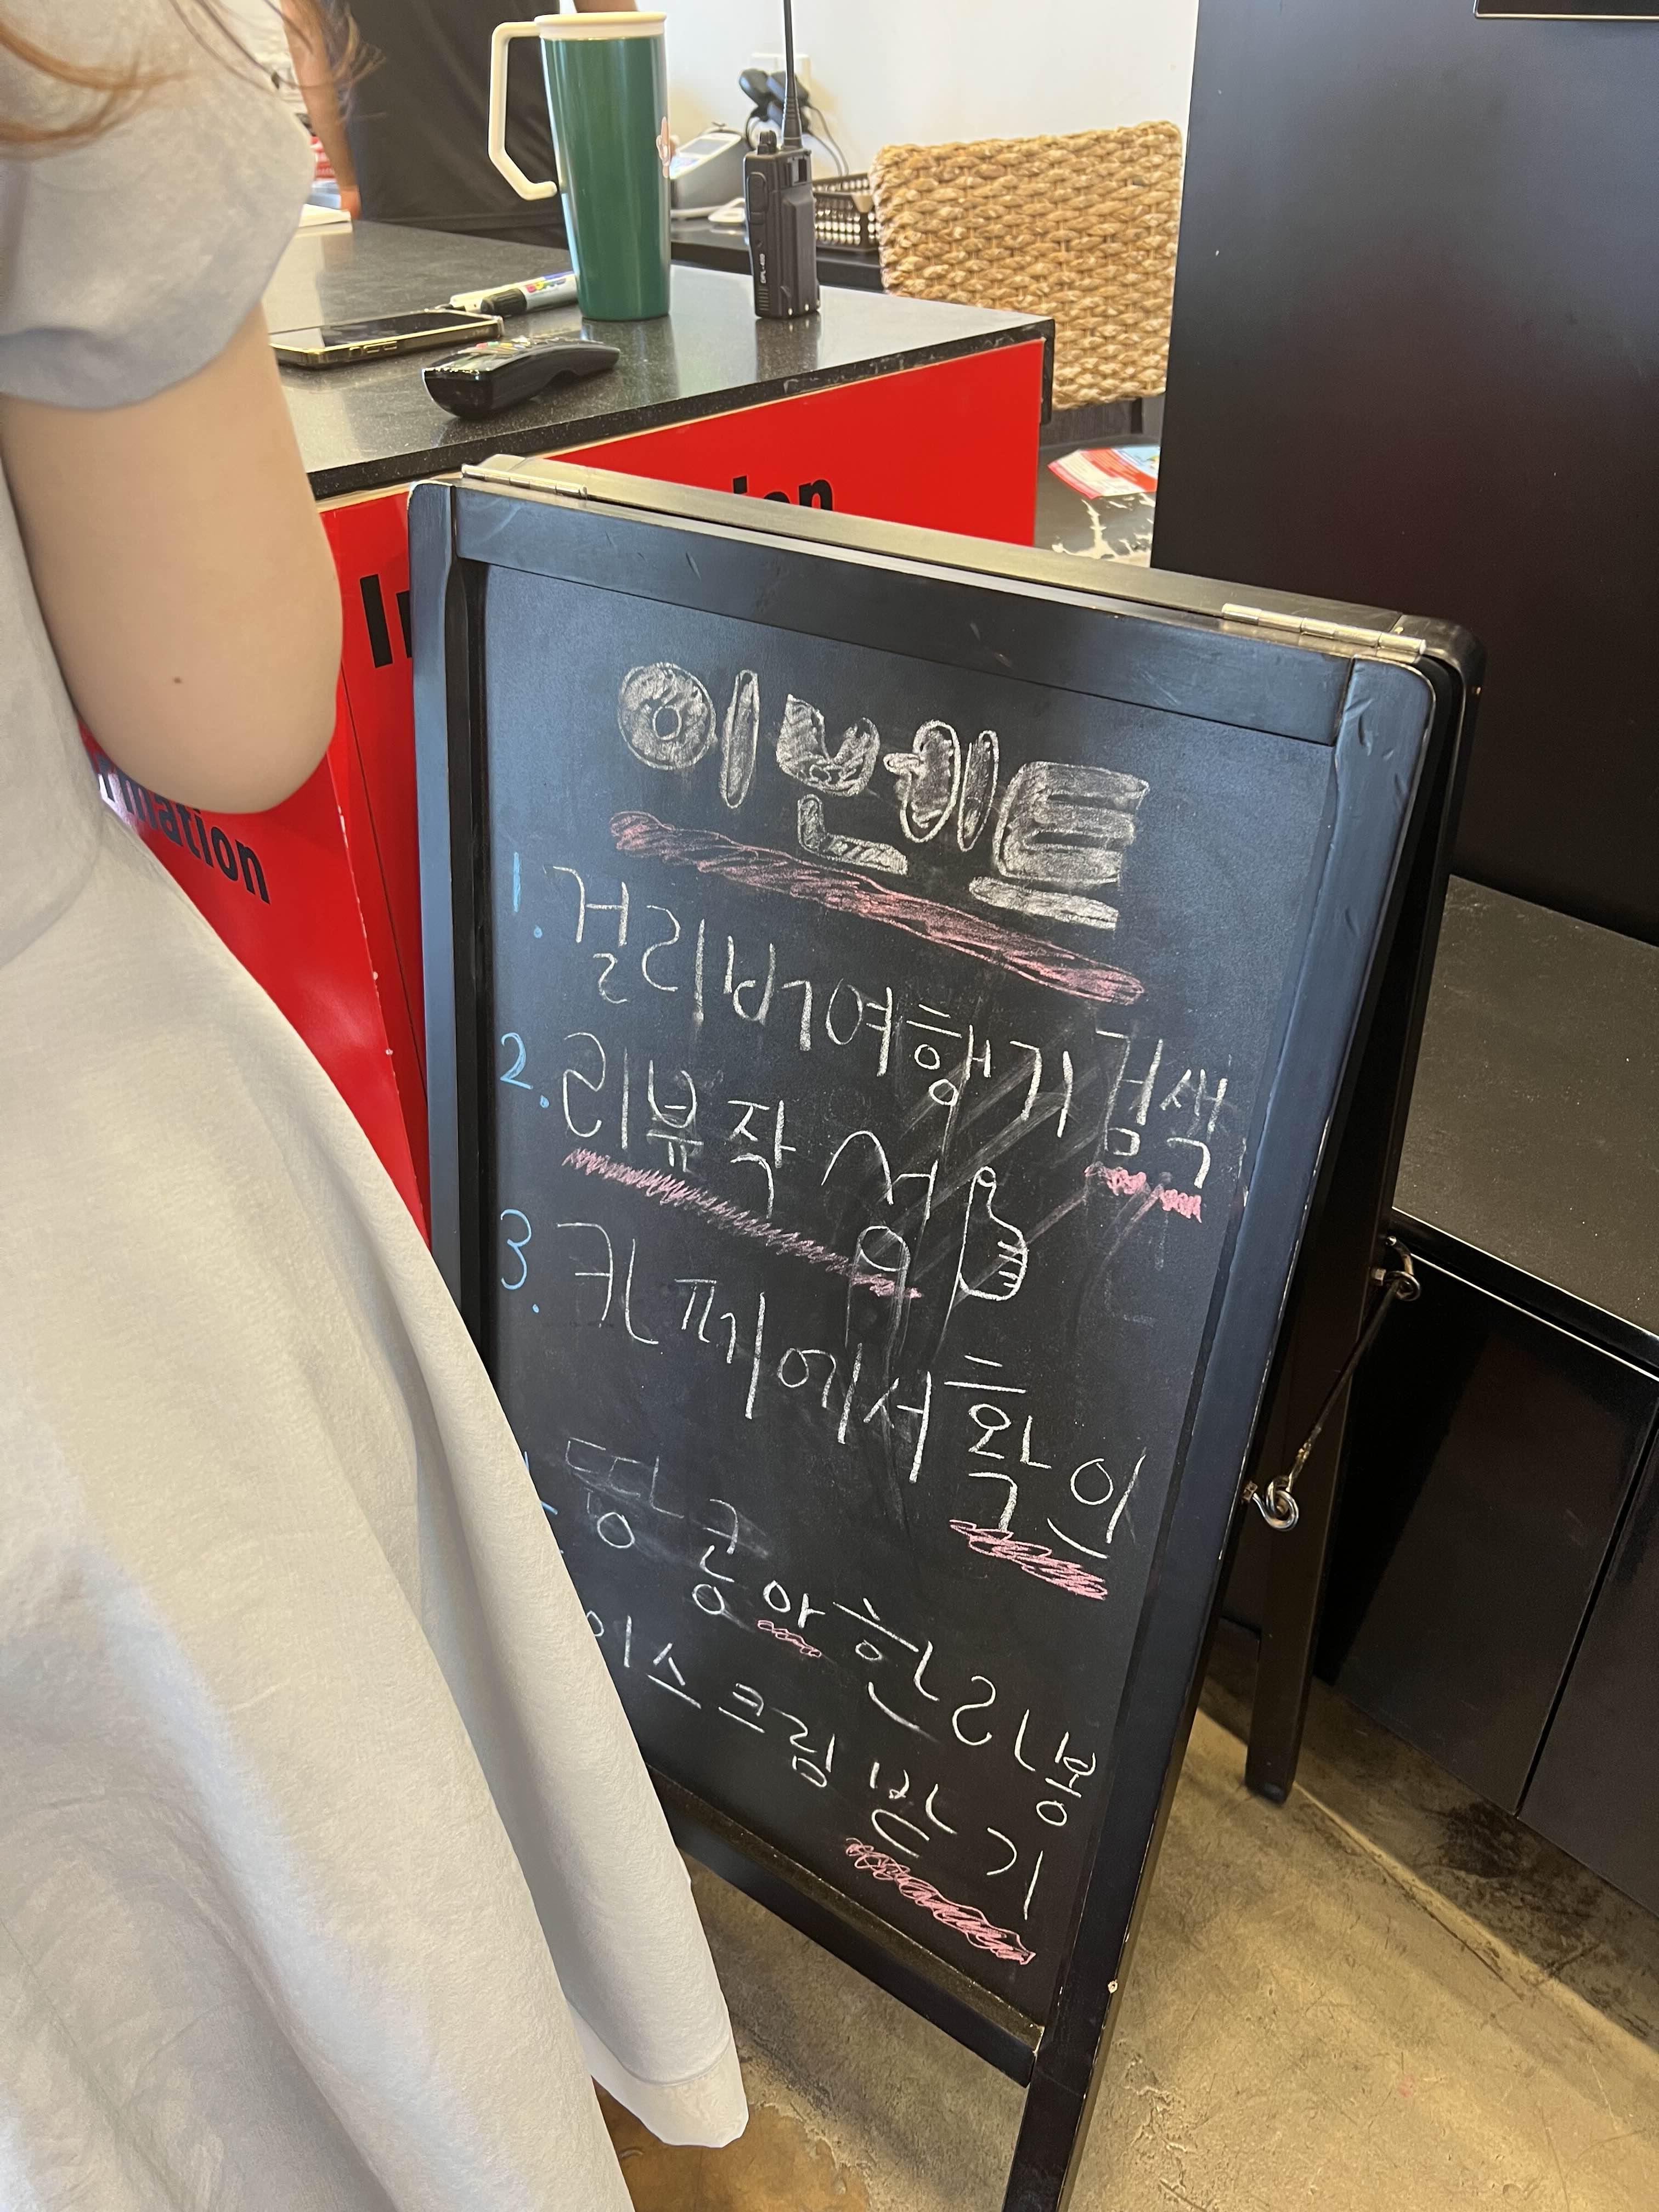 이벤트
1. 걸리버여행기 검색
2. 리뷰작성
3. 카페에서 확인
땅콩아 한라봉
이스크림 받기
In
ion
rmation